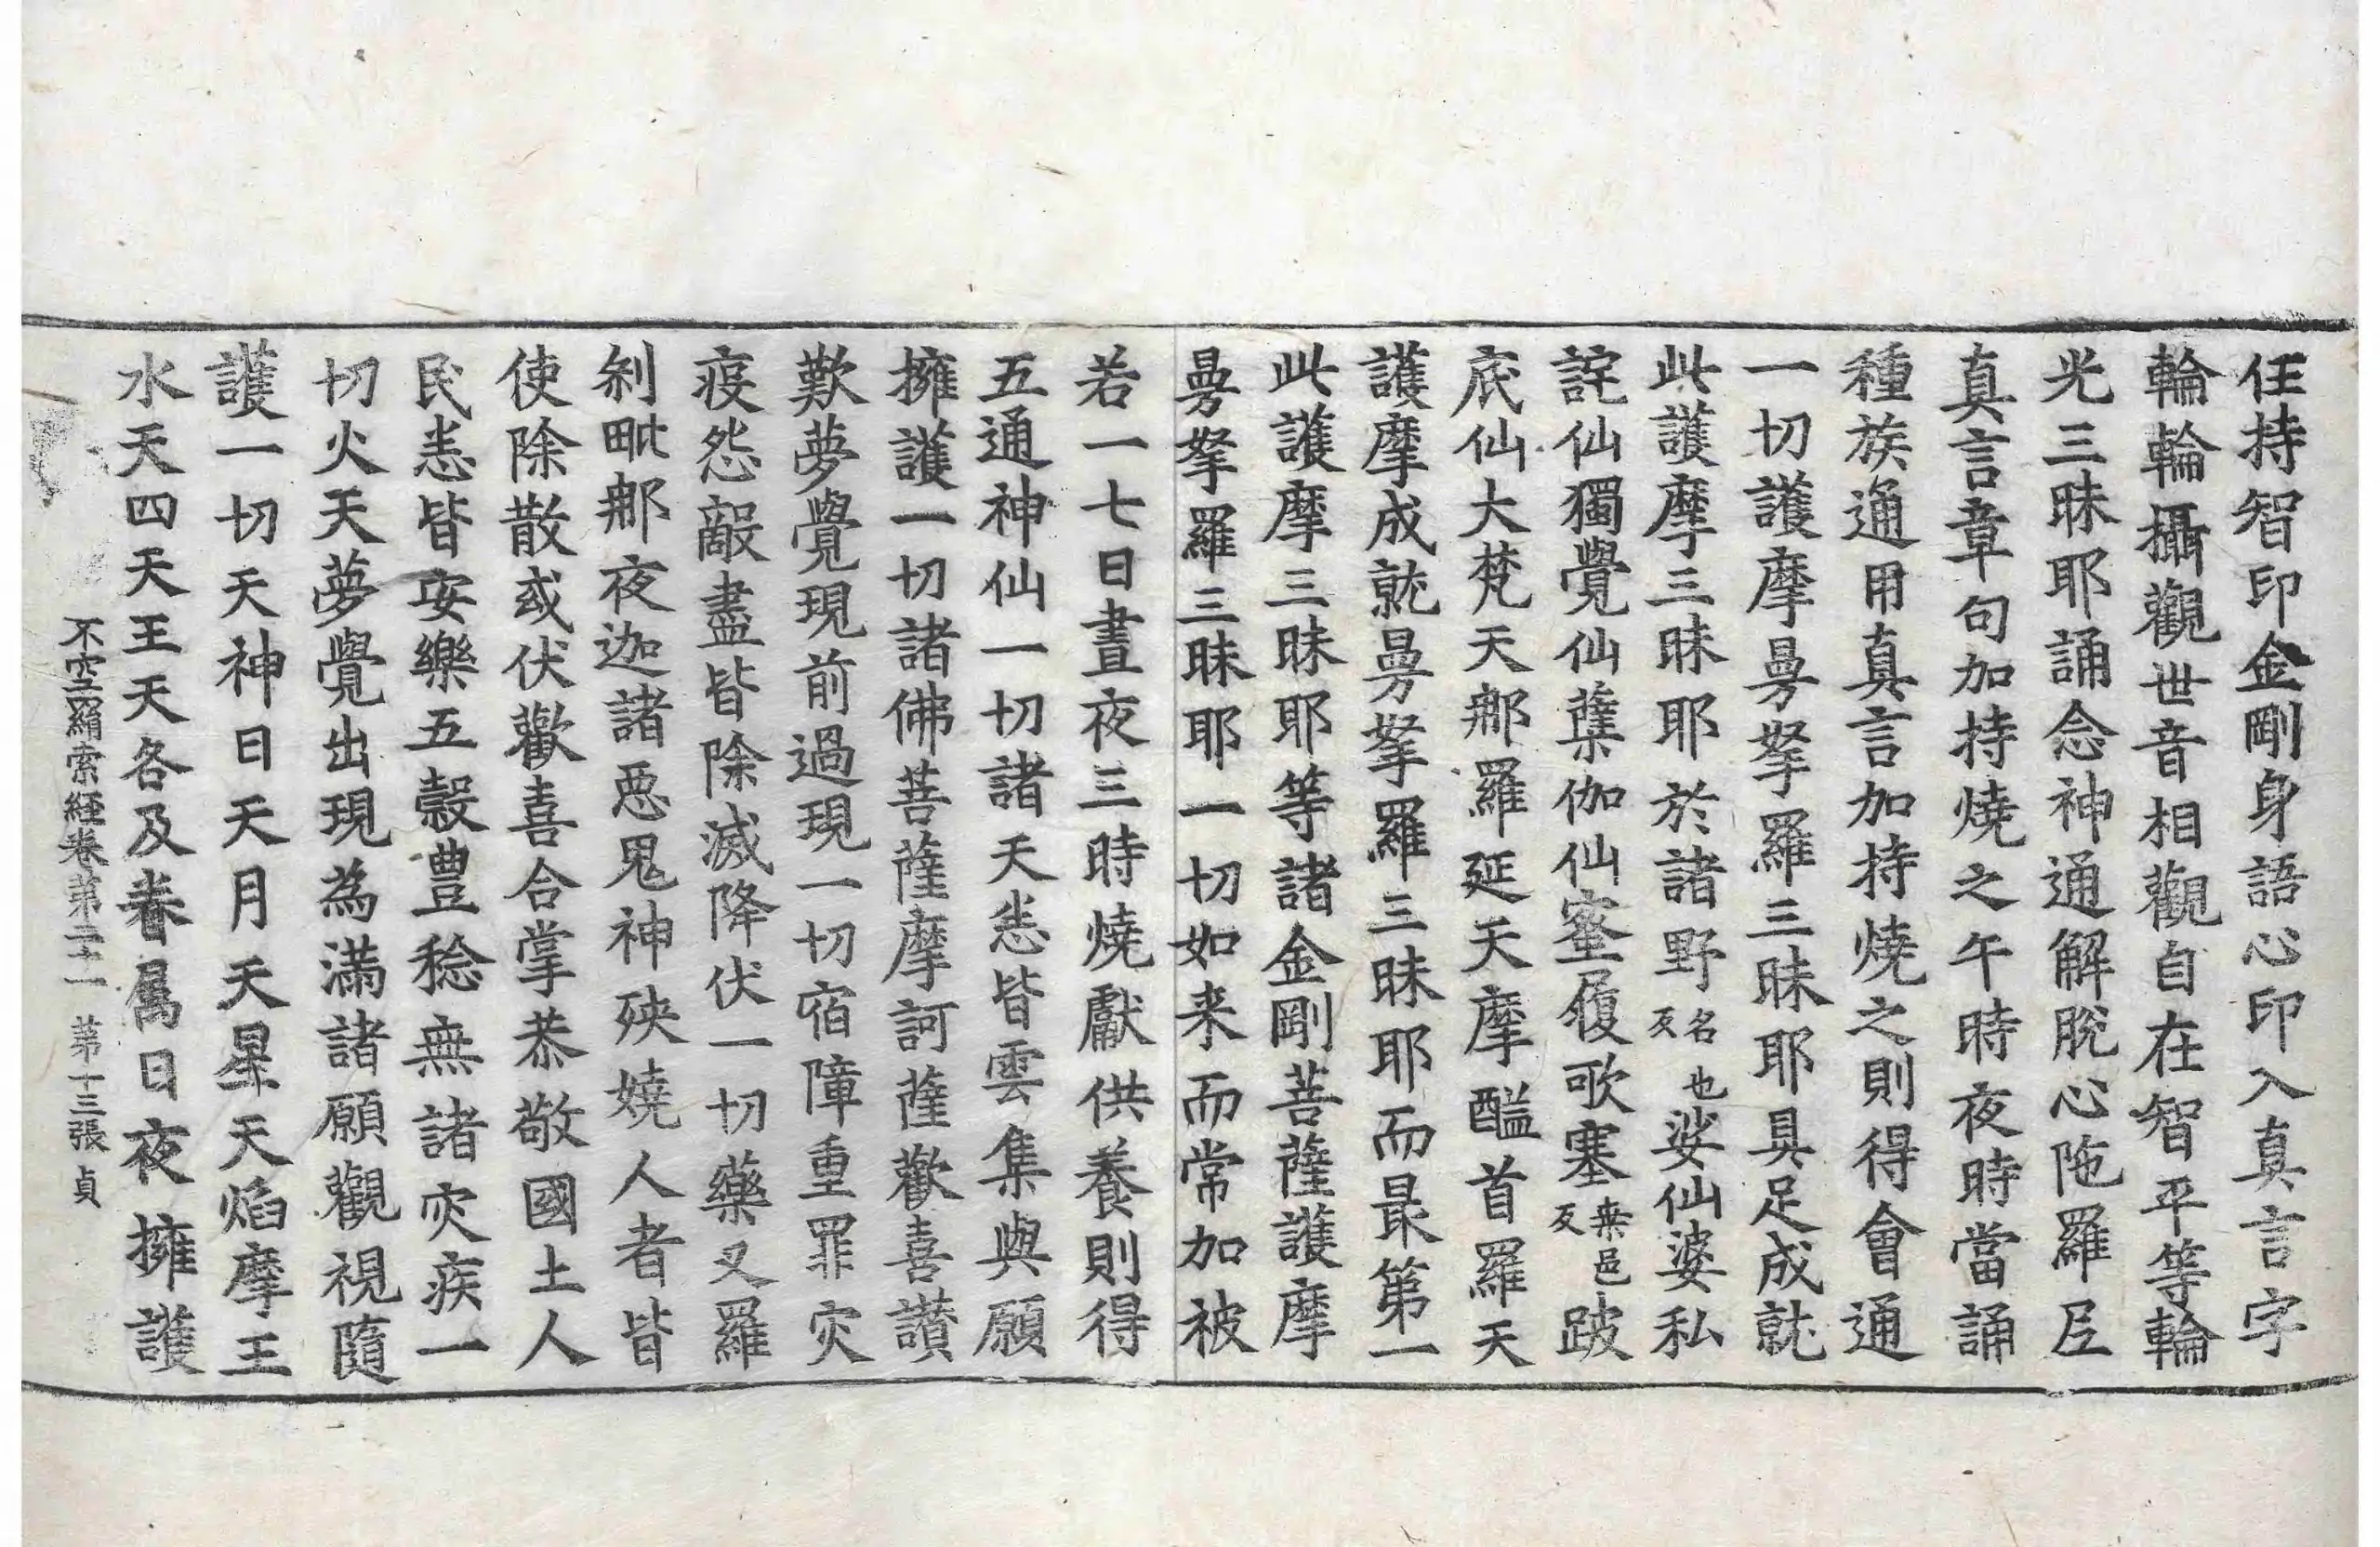 任持智印金剛身語心印入真言字
輪輪攝觀世音相觀自在智平等輪
光三昧耶誦念神通解脫心陁羅𡰱
真言章句加持燒之午時夜時當誦
種族通用真言加持燒之則得會通
一切護摩曼拏羅三昧耶具足成就
此護摩三昧耶於諸野名也反娑仙婆私
詫仙獨覺仙蘗伽仙蜜履歌塞桒邑反跛
底仙大梵天郍羅延天摩醯首羅天
護摩成就曼拏羅三昧耶而最第一
此護摩三昧耶等諸金剛菩薩護摩
曼拏羅三昧耶一切如来而常加被
若一七日晝夜三時燒獻供養則得
五通神仙一切諸天悉皆雲集與願
擁護一切諸佛菩薩摩訶薩歡喜讃
歎夢覺現前過現一切宿障重罪灾
疫怨敵盡皆除滅降伏一切藥叉羅
剎毗郍夜迦諸惡鬼神殃嬈人者皆
使除散或伏歡喜合掌恭敬國土人
民悉皆安樂五穀豊稔無諸灾疾一
切火天夢覺出現為滿諸願觀視隨
護一切天神日天月天星天焰摩王
水天四天王天各及眷屬日夜擁護
不空罥索經卷第二十一 第十三張 貞